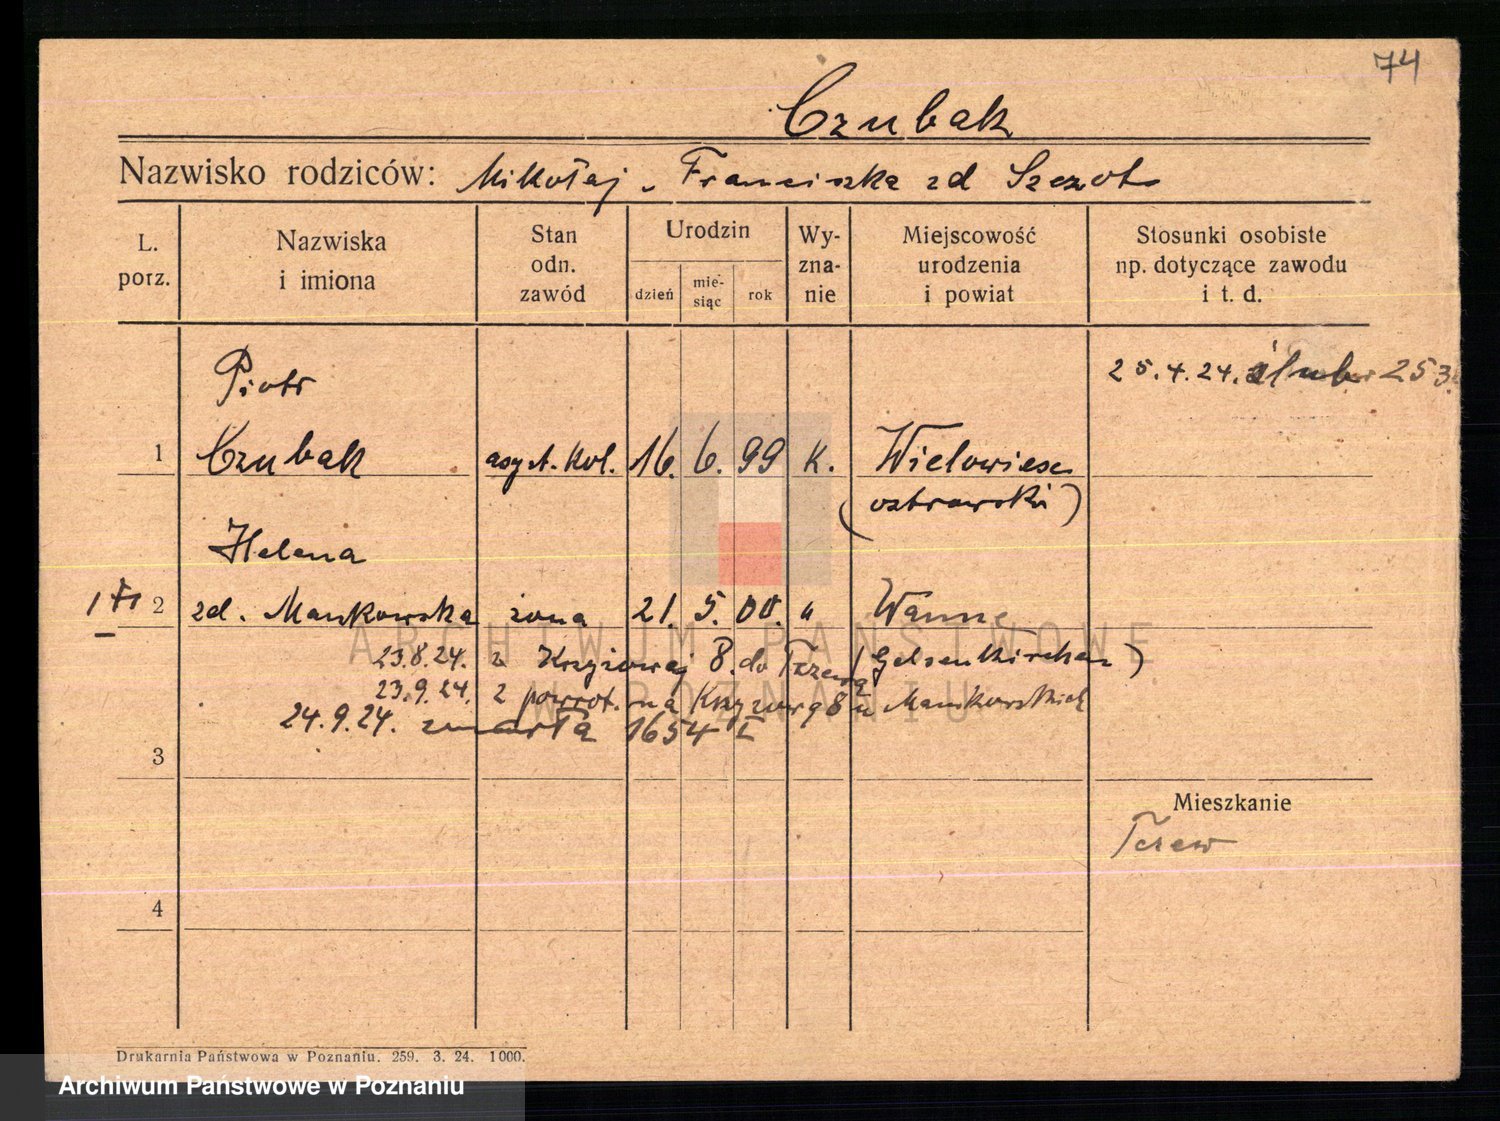 74
Czubak
Nazwisko rodziców: Mikołaj - Franciszka zd Szczot
L. porz.
Nazwiska i imiona
Stan odn. zawód
Urodzin
dzień
mie-siąc
rok
Wy-zna-nie
Miejscowość urodzenia i powiat
Stosunki osobiste np. dotyczące zawodu i t. d.
Piotr
25.4.24. ślub 253
1 Czubak asyst. kol. 16. 6. 99 k. Wielowiese
(ostrowski)
Helena
I 2 zd. Mankowska żona 21. 5. 00. " Wanne
23.8.24. z Krzyżowej 8. do Tczewa (Gelsenkirchen)
23.9.24. z powrot. na Krzyżową 8 u Mankowskich
24.9.24. zmarła 1654 I
3
Mieszkanie
Tczew
4
Drukarnia Państwowa w Poznaniu. 259. 3. 24. 1000.
ARCHIWUM PAŃSTWOWE
W POZNANIU
Archiwum Państwowe w Poznaniu